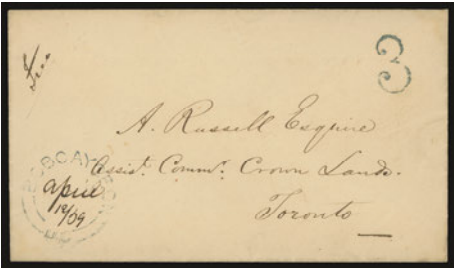 Free
3
A. Russell Esquire
Assist. Commr. Crown Lands.
Toronto
BOBCAY
April